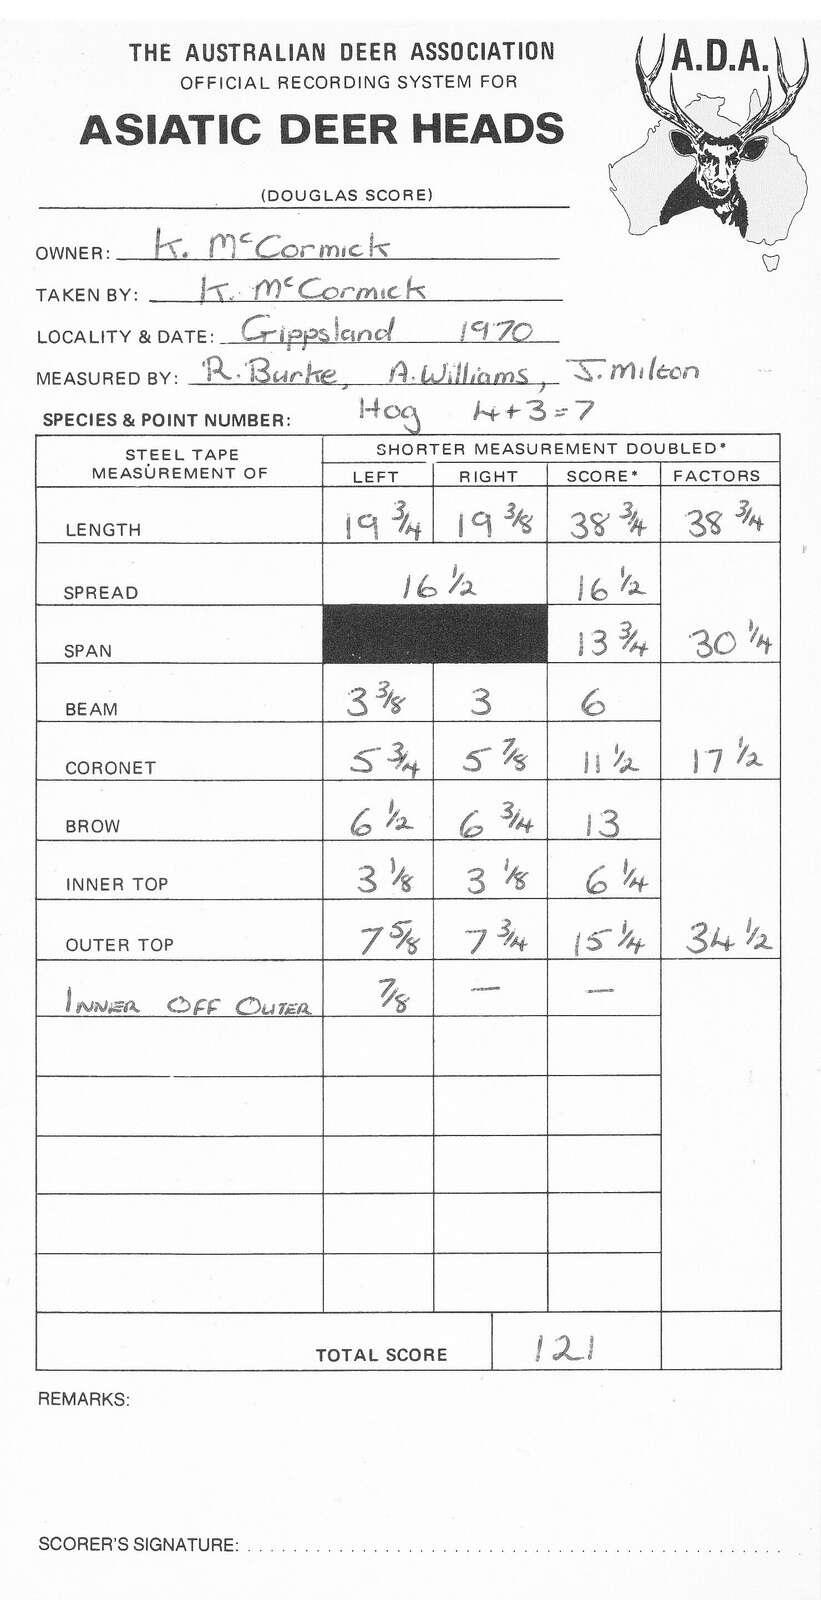 THE AUSTRALIAN DEER ASSOCIATION
OFFICIAL RECORDING SYSTEM FOR
ASIATIC DEER HEADS
A.D.A.
(DOUGLAS SCORE)
OWNER: K. McCormick
TAKEN BY: K. McCormick
LOCALITY & DATE: Gippsland 1970
MEASURED BY: R. Burke, A. Williams, J. Milton
SPECIES & POINT NUMBER: Hog 4+3=7
STEEL TAPE MEASUREMENT OF SHORTER MEASUREMENT DOUBLED*
LEFT RIGHT SCORE* FACTORS
LENGTH 19 3/4 19 3/8 38 3/4 38 3/4
SPREAD 16 1/2 16 1/2
SPAN 13 3/4 30 1/4
BEAM 3 3/8 3 6
CORONET 5 3/4 5 7/8 11 1/2 17 1/2
BROW 6 1/2 6 3/4 13
INNER TOP 3 1/8 3 1/8 6 1/4
OUTER TOP 7 5/8 7 3/4 15 1/4 34 1/2
INNER OFF OUTER 7/8 — —
TOTAL SCORE 121
REMARKS:
SCORER'S SIGNATURE: